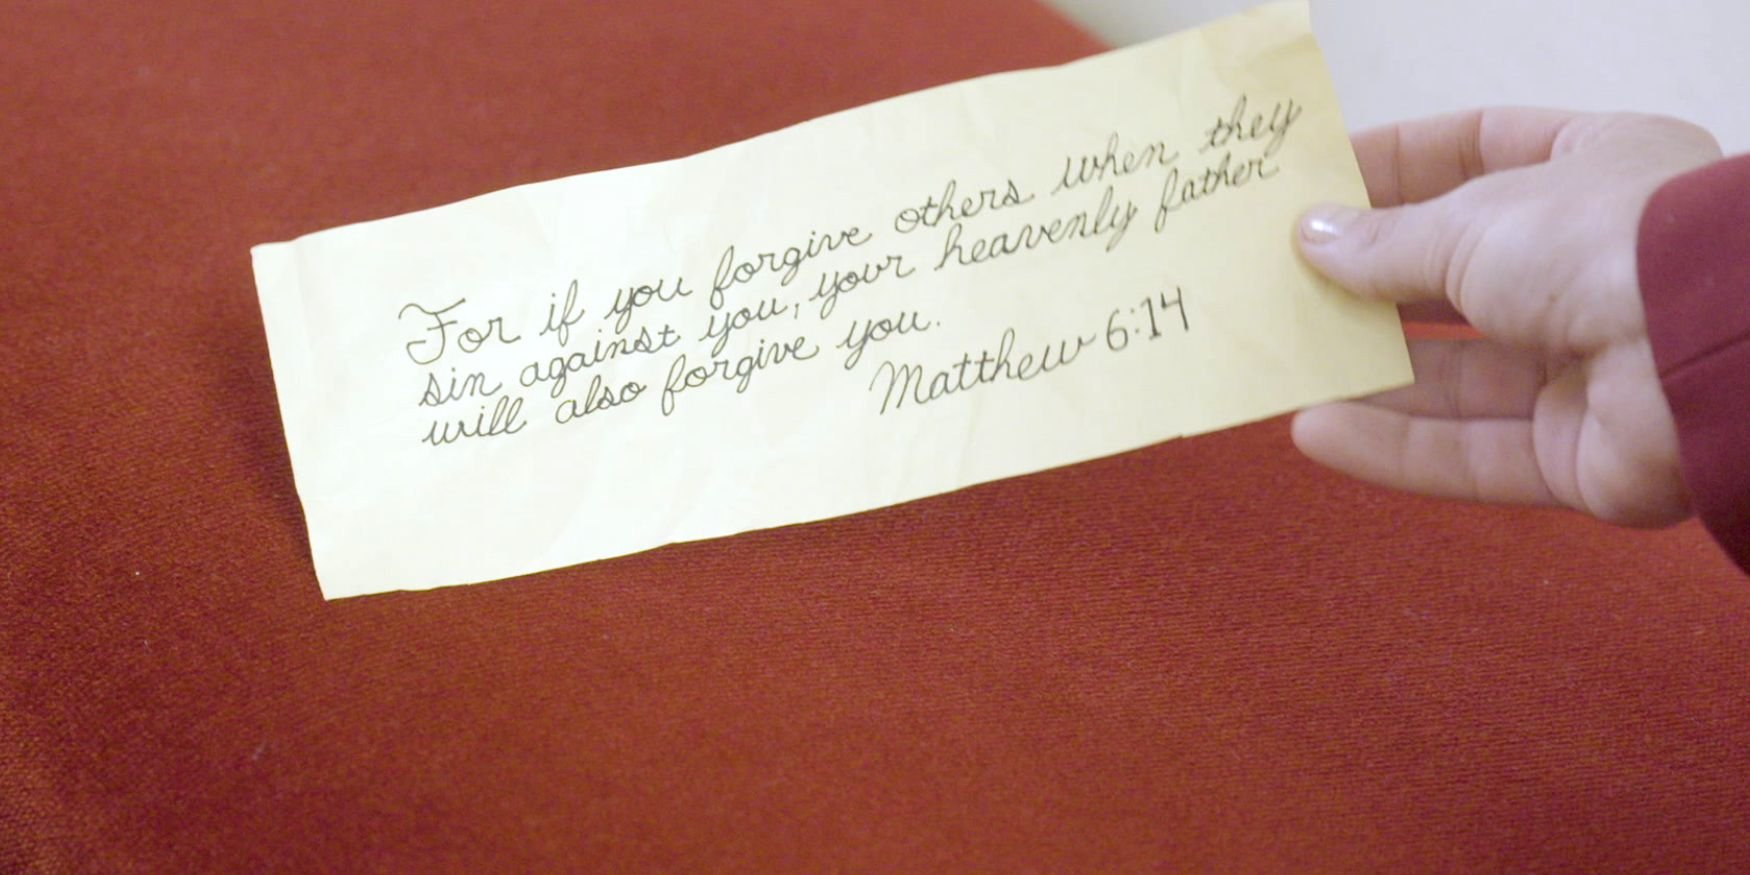 For if you forgive others when they
sin against you, your heavenly father
will also forgive you.
Matthew 6:14